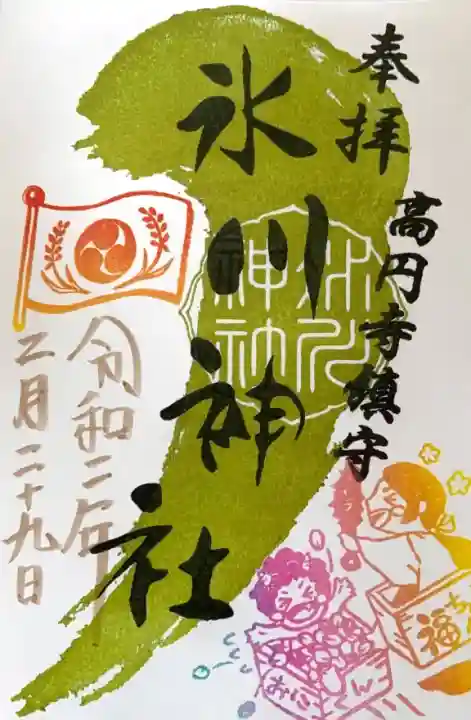 奉拝
高円寺鎮守
氷川神社
氷川
神社
令和二年
二月二十九日
福
おに